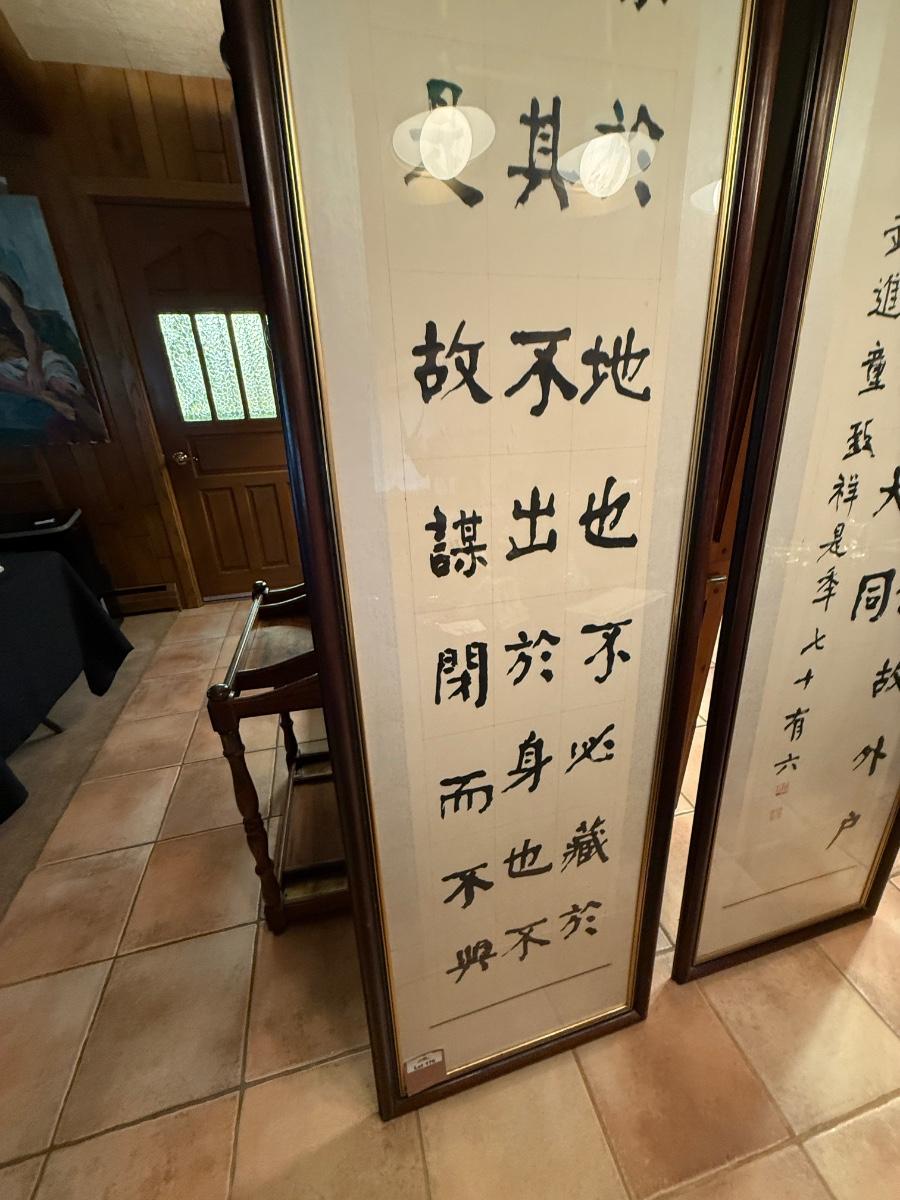 於地也不必藏於
其不出於身也不
是故謀閉而不興
故外户
大同
武進童致祥是秊七十有六